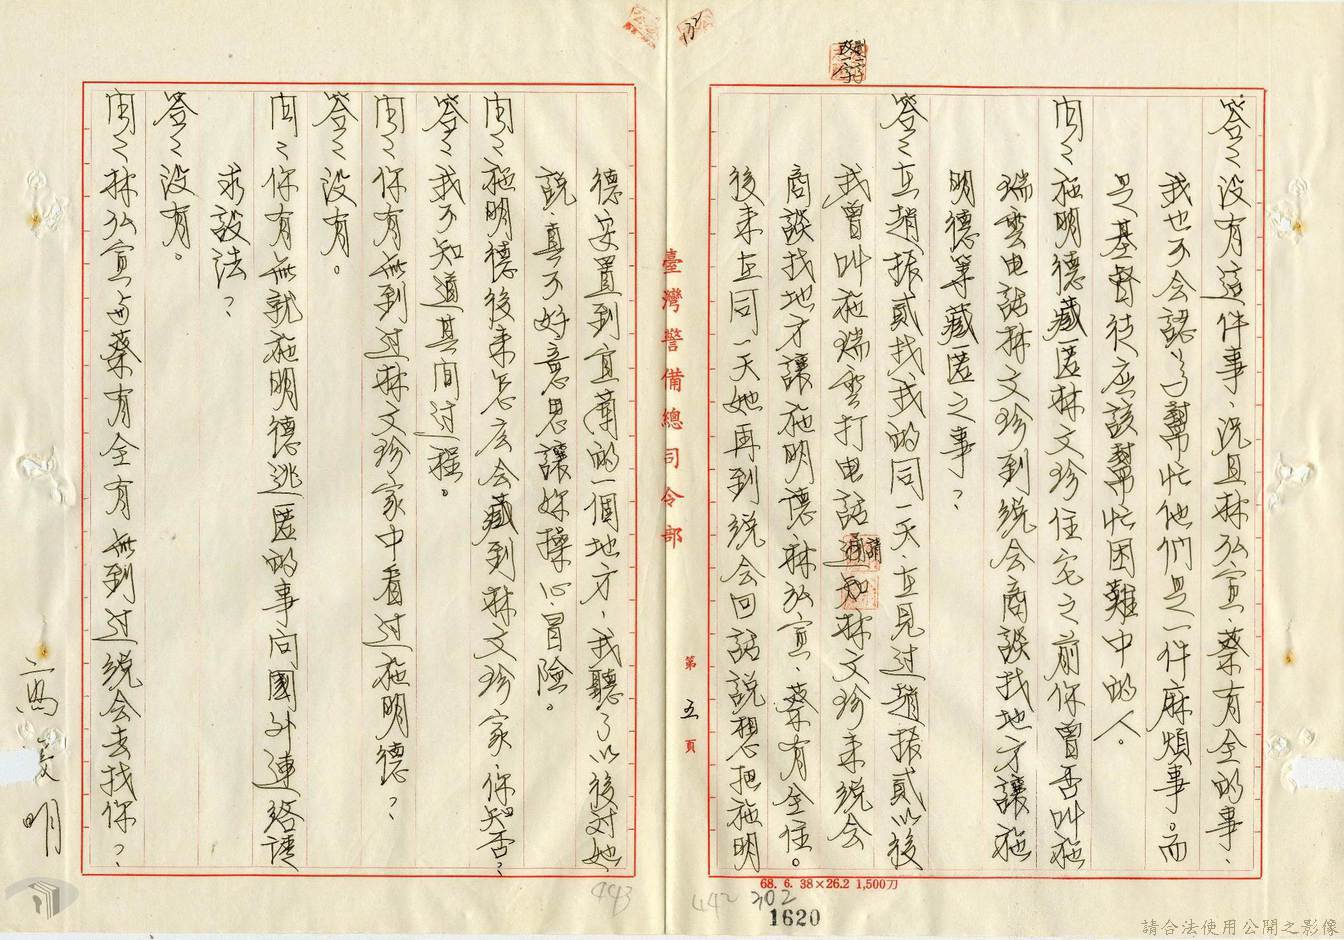 答：没有這件事，況且林弘宣、蔡有全的事，
我也不会認為幫忙他們是一件麻煩事。而
是基督徒应該幫忙困難中的人。
問：施明德藏匿林文珍住宅之前你曾否叫施
瑞雲电話林文珍到総会商談找地方讓施
明德等藏匿之事？
答：在趙振貳找我的同一天，在見过趙振貳以後
我曾叫施瑞雲打电話請林文珍来総会
商談找地方讓施明德、林弘宣、蔡有全住。
後来在同一天她再到総会回話說想把施明
臺灣警備總司令部
第五頁
德安置到宜蘭的一個地方，我聽了以後对她
說：真不好意思讓妳操心冒險。
問：施明德後来怎么会藏到林文珍家你知否？
答：我不知道其间过程。
問：你有無到过林文珍家中看过施明德？
答：没有。
問：你有無就施明德逃匿的事向國外連络請
求設法？
答：没有。
問：林弘宣与蔡有全有無到过総会去找你？
高
明
68. 6. 38×26.2 1,500刀
443
442
302
1620
請合法使用公開之影像